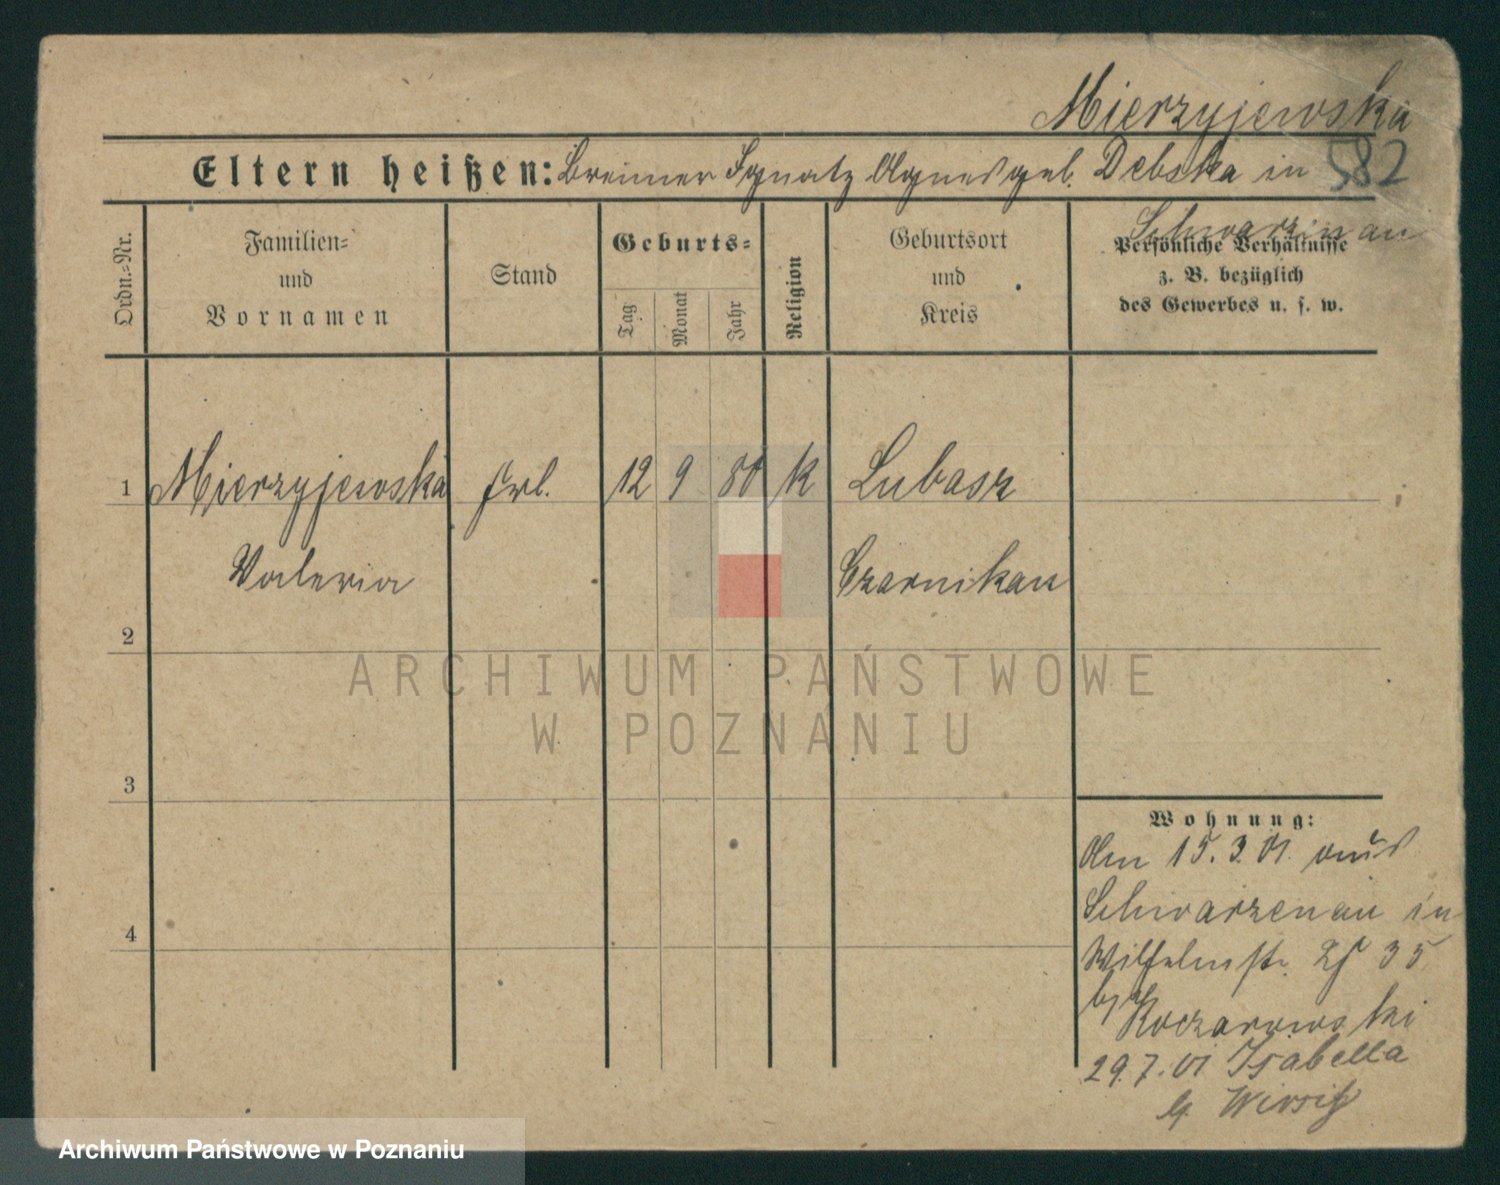 Mierzyjewska
Eltern heißen: Breimer Ignatz Agnes geb. Debska in 582
Schwarzenau
Ordn.-Nr.
Familien-
und
Vornamen
Stand
Geburts-
Tag
Monat
Jahr
Religion
Geburtsort
und
Kreis
Persönliche Verhältnisse
z. B. bezüglich
des Gewerbes u. s. w.
1 Mierzyjewska Frl. 12 9 80 K Lubasz
Valeria Czarnikau
2
ARCHIWUM PAŃSTWOWE
W POZNANIU
3
Wohnung:
Am 15.3.01. aus
4 Schwarzenau in
Wilhelmstr. 35
Koczorowski
29.7.01 Isabella
Archiwum Państwowe w Poznaniu